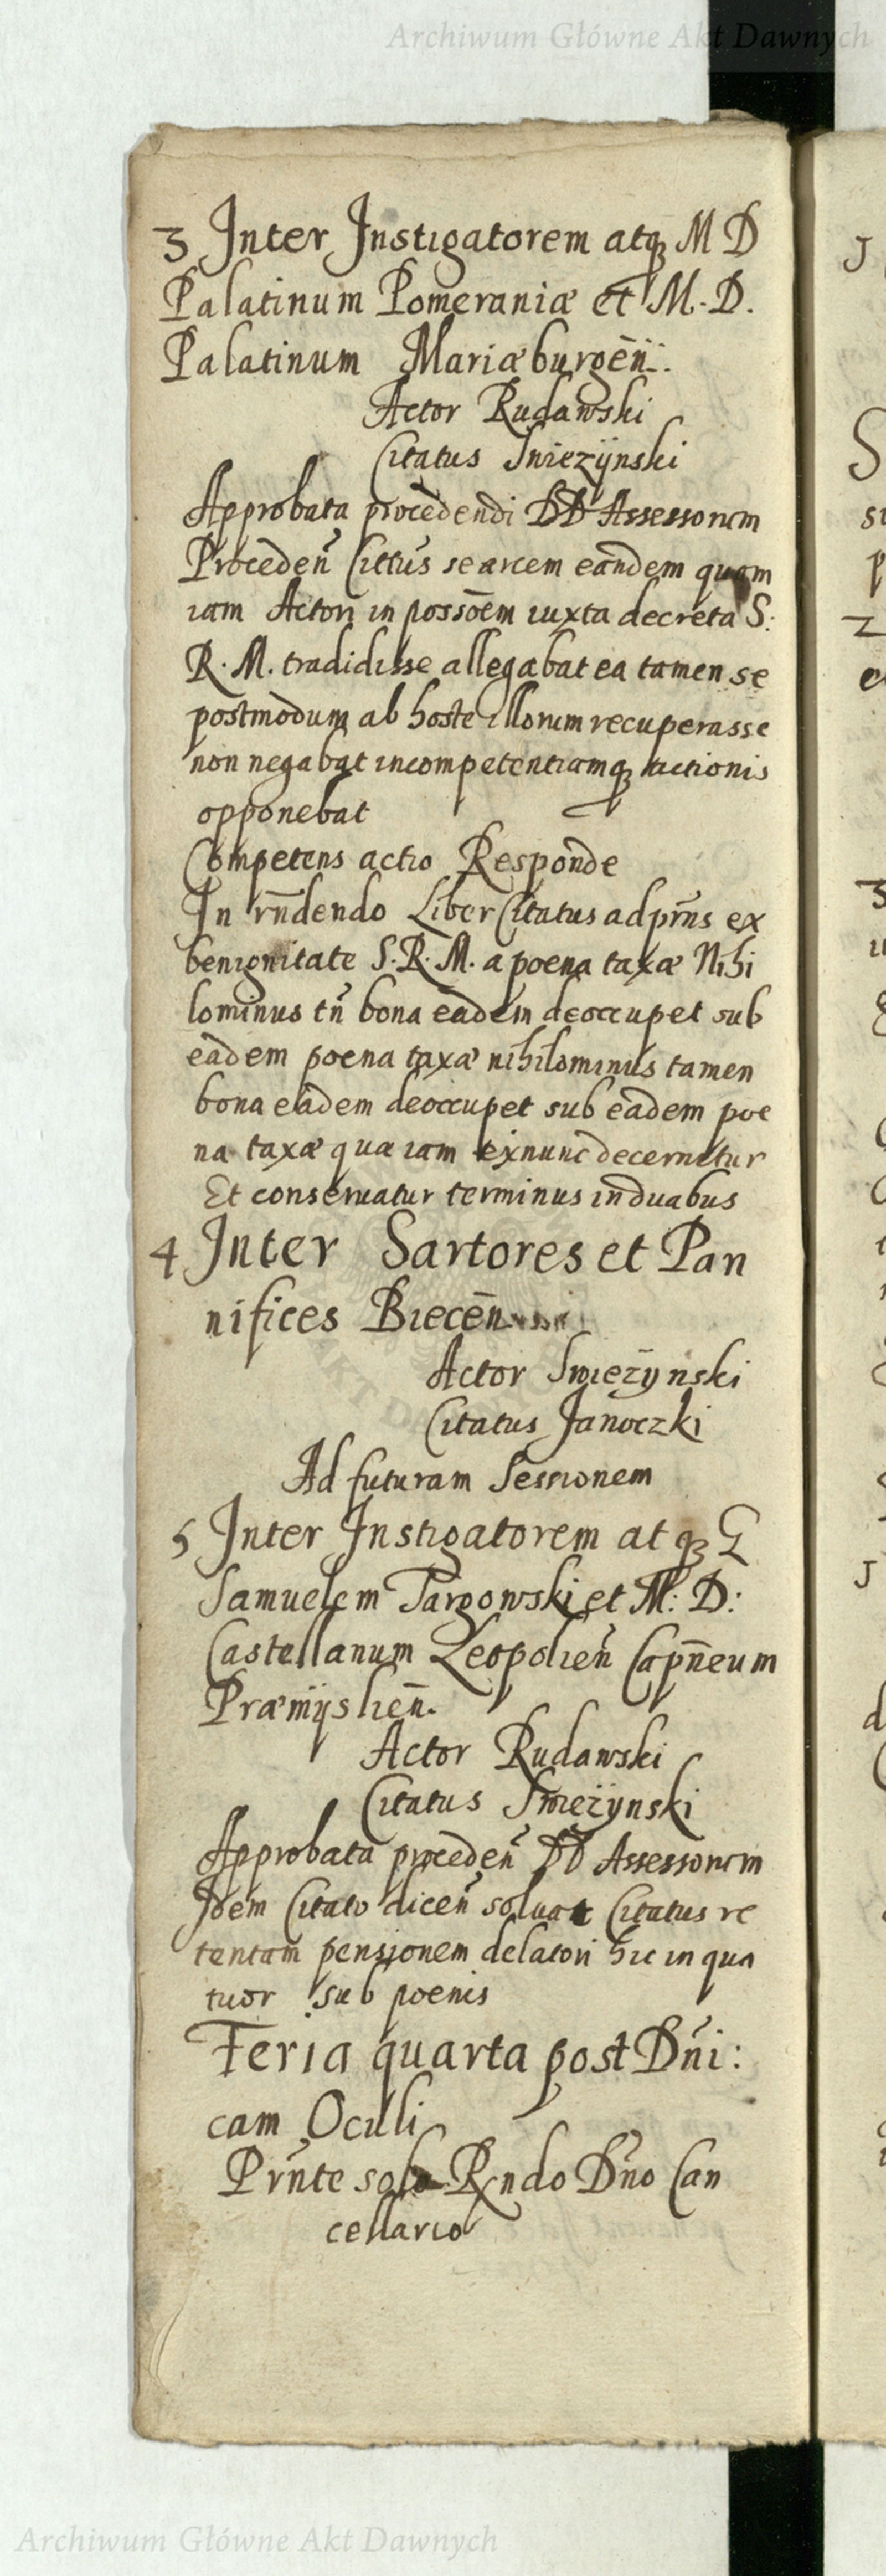 Archiwum Główne Akt Dawnych
3 Inter Instigatorem atq̃ M D
Palatinum Pomeraniæ et M. D.
Palatinum Mariæburgen̄.
Actor Rudawski
Citatus Swiezÿnski
Approbata procedendi DD Assessorum
Proceden̄ Cittus se arcem eandem quam
iam Actori in possōem iuxta decreta S:
R. M. tradidisse allegabat ea tamen se
postmodum ab hoste illorum recuperasse
non negabat incompetentiamq̃ actionis
opponebat
Competens actio Responde
In rn̄dendo Liber Citatus ad prn̄s ex
benignitate S. R. M. a poena taxæ Nihi
lominus tn̄ bona eadem deoccupet sub
eadem poena taxæ nihilominus tamen
bona eadem deoccupet sub eadem poe
na taxæ quæ iam ex nunc decernetur
Et conseruatur terminus in duabus
4 Inter Sartores et Pan
nifices Biecen̄
Actor Swiezÿnski
Citatus Janoczki
Ad futuram Sessionem
5 Inter Instigatorem atq̃ G
Samuelem Targowski et M: D:
Castellanum Leopolien̄ Capn̄eum
Præmÿslien̄.
Actor Rudawski
Citatus Swiezÿnski
Approbata proceden̄ DD Assessorum
Idem Citato dicen̄ soluat Citatus re
tentam pensionem delatori hic in qua
tuor sub poenis
Feria quarta post Dn̄i:
cam Oculi
Prn̄te solo Rndo Dn̄o Can
cellario
Archiwum Główne Akt Dawnych